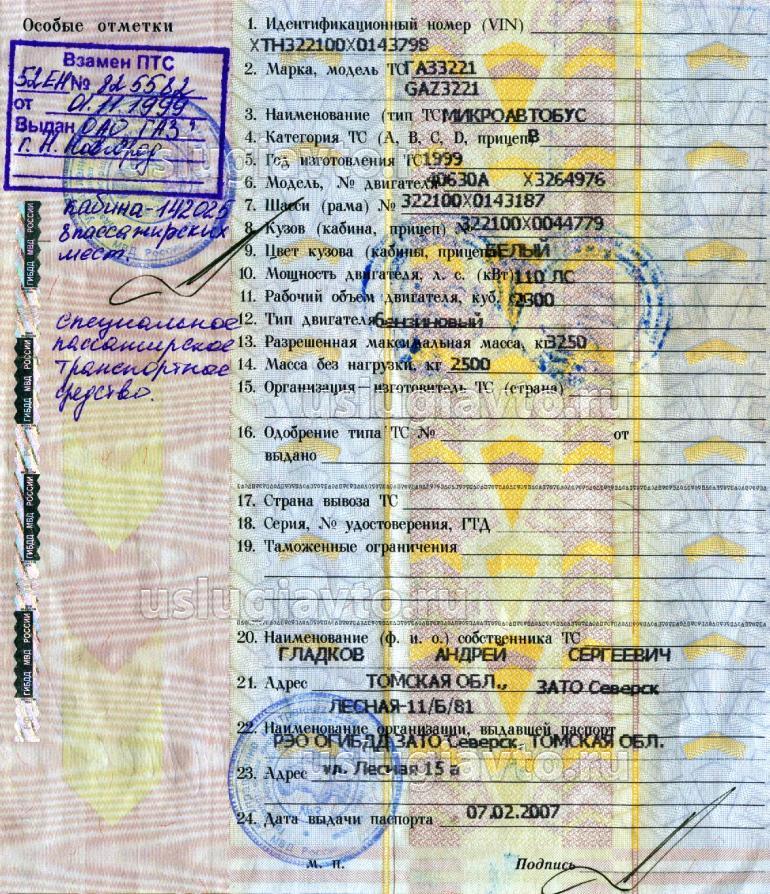 Особые отметки
Взамен ПТС
52ЕН № 825582
от 01.11.1999
Выдан ОАО "ГАЗ"
г. Н. Новгород
Кабина-142025
8 пассажирских
мест.
Специальное
пассажирское
транспортное
средство.
ГИБДД МВД РОССИИ
ГИБДД МВД РОССИИ
ГИБДД МВД РОССИИ
ГИБДД МВД РОССИИ
1. Идентификационный номер (VIN)
XTH322100X0143798
2. Марка, модель ТС ГАЗ3221
GAZ3221
3. Наименование (тип ТС МИКРОАВТОБУС
4. Категория ТС (А, В, С, D, прицеп) В
5. Год изготовления ТС 1999
6. Модель, № двигателя 40630А X3264976
7. Шасси (рама) № 322100X0143187
8. Кузов (кабина, прицеп) № 322100X0044779
9. Цвет кузова (кабины, прицепа) БЕЛЫЙ
10. Мощность двигателя, л. с. (кВт) 110 ЛС
11. Рабочий объем двигателя, куб. см 2300
12. Тип двигателя бензиновый
13. Разрешенная максимальная масса, кг 3250
14. Масса без нагрузки, кг 2500
15. Организация—изготовитель ТС (страна)
16. Одобрение типа ТС № от
выдано
17. Страна вывоза ТС
18. Серия, № удостоверения, ГТД
19. Таможенные ограничения
20. Наименование (ф. и. о.) собственника ТС
ГЛАДКОВ АНДРЕЙ СЕРГЕЕВИЧ
21. Адрес ТОМСКАЯ ОБЛ., ЗАТО Северск
ЛЕСНАЯ-11/Б/81
22. Наименование организации, выдавшей паспорт
РЭО ОГИБДД ЗАТО Северск, ТОМСКАЯ ОБЛ.
23. Адрес ул. Лесная 15 а
24. Дата выдачи паспорта 07.02.2007
М. П. Подпись
uslugiavto.ru
uslugiavto.ru
uslugiavto.ru
uslugiavto.ru